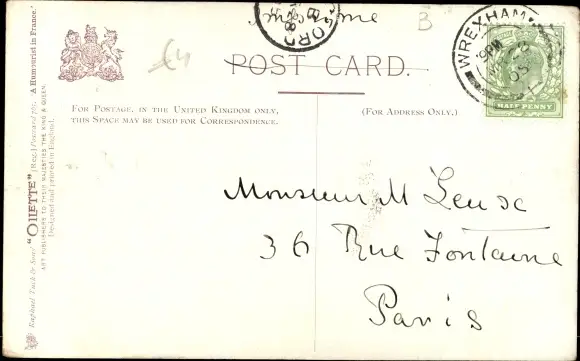 Imprimé B
£4
POST CARD.
FOR POSTAGE, IN THE UNITED KINGDOM ONLY,
THIS SPACE MAY BE USED FOR CORRESPONDENCE.
(FOR ADDRESS ONLY.)
WREXHAM
9 PM
05
HALF PENNY
Monsieur M
36 Rue Fontaine
Paris
Raphael Tuck & Sons' "OILETTE" [Reg.] Postcard 'A Humourist in France.'
ART PUBLISHERS TO THEIR MAJESTIES THE KING & QUEEN.
Designed and printed in England.